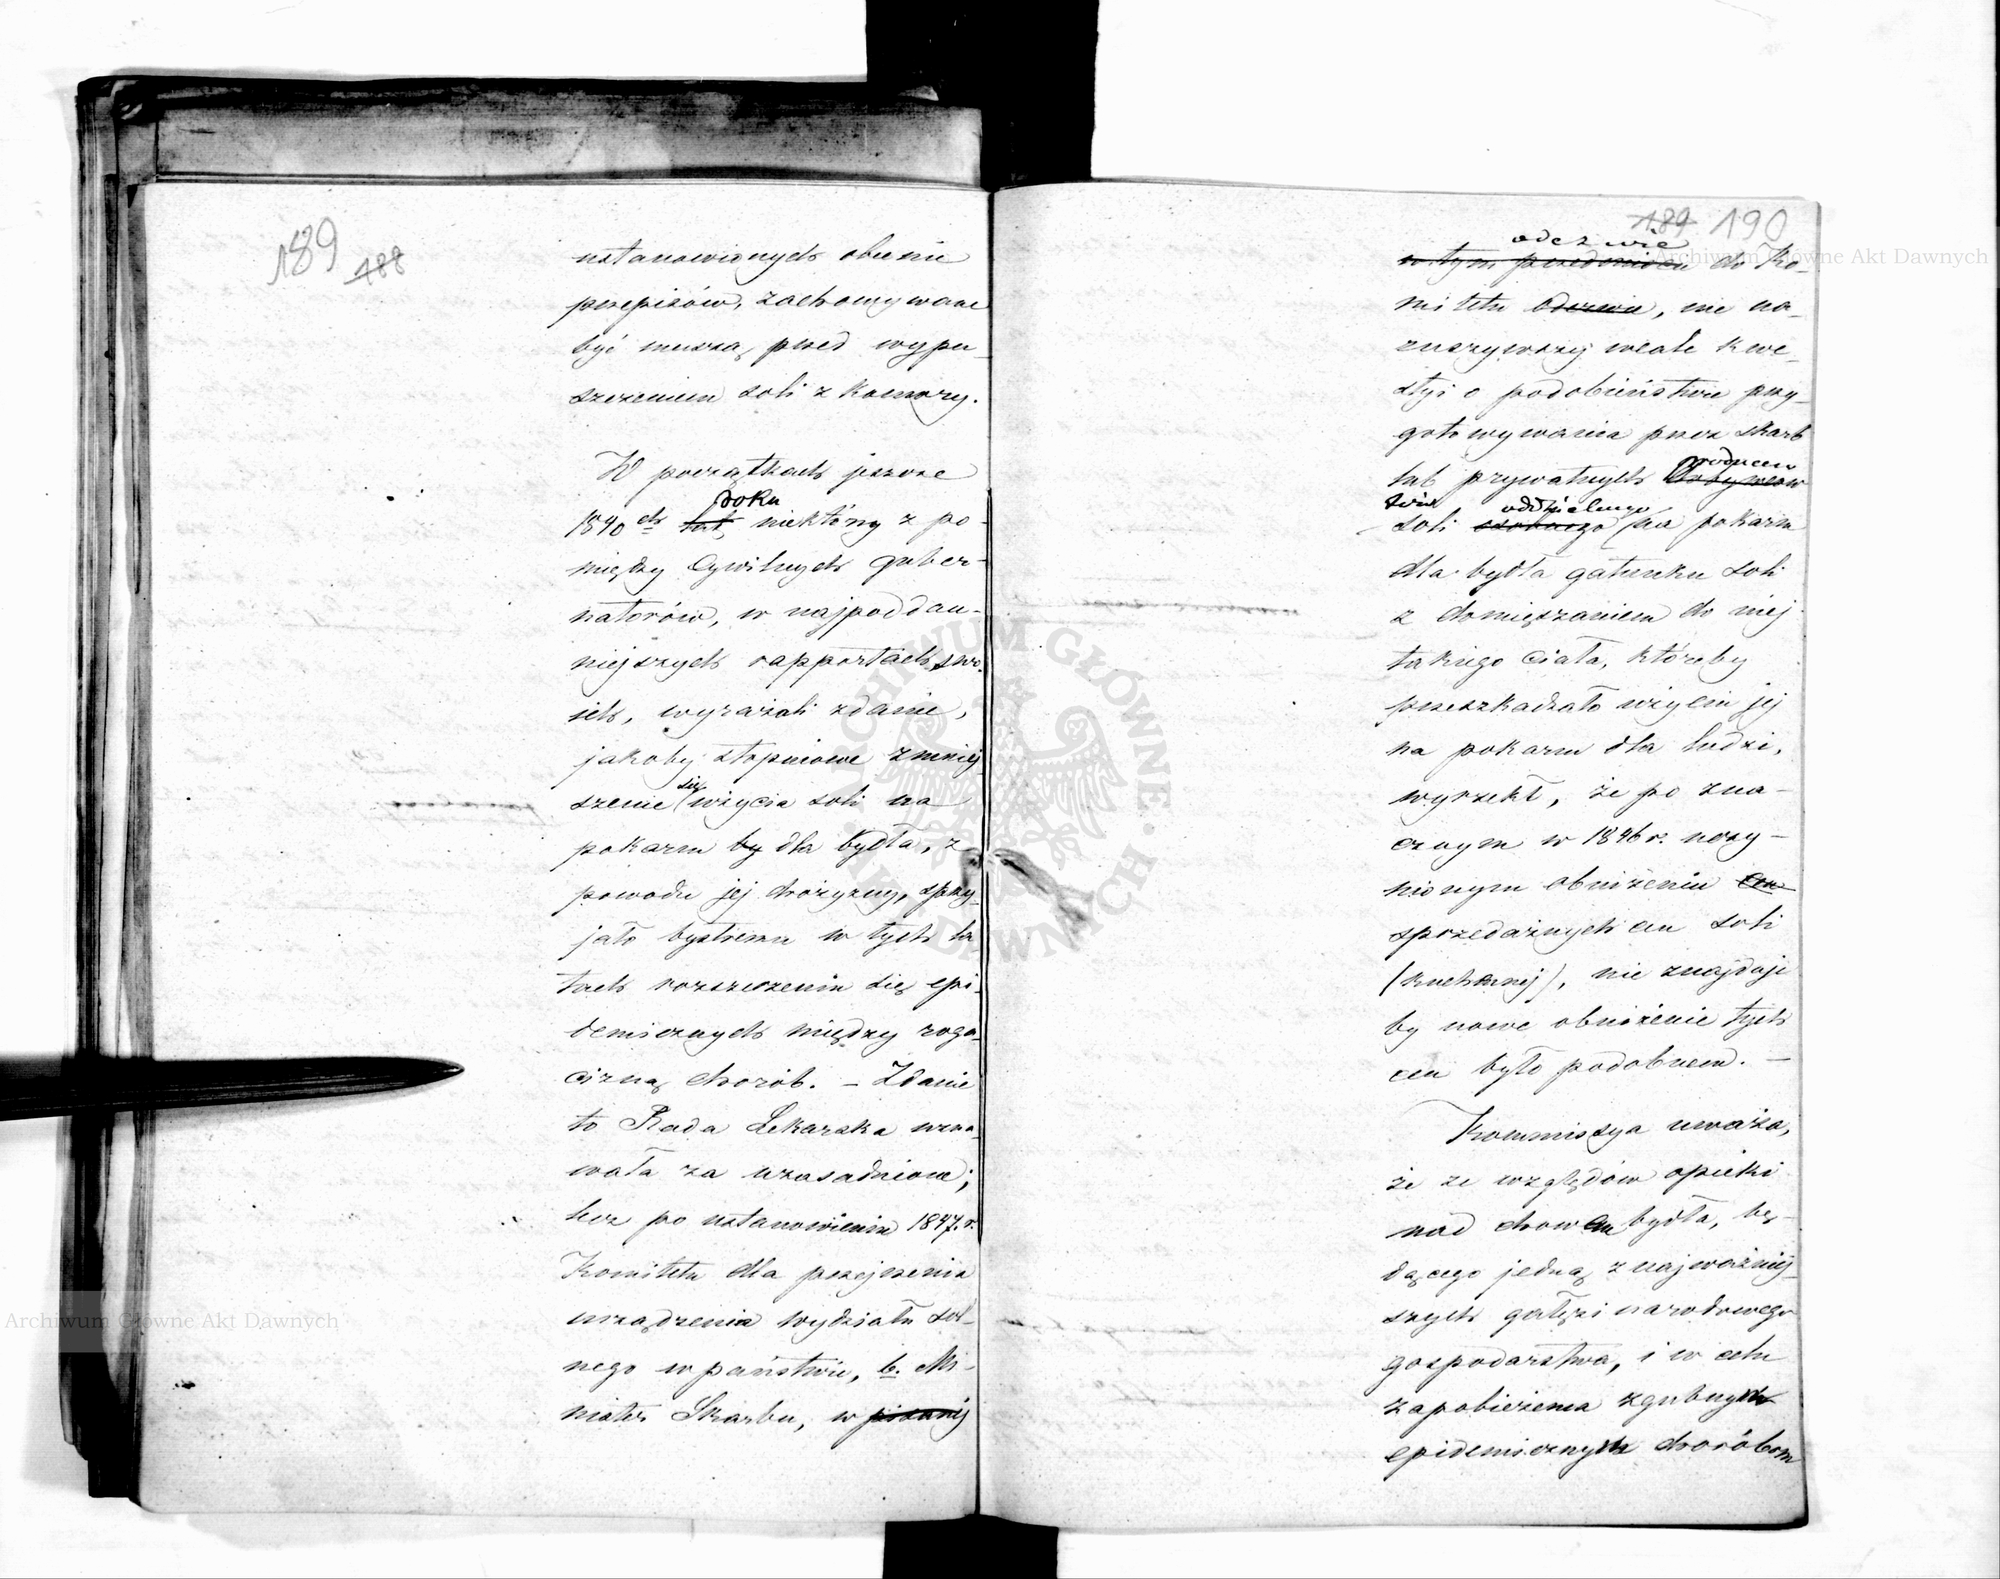 189 188
ustanowionych obecnie
przepisów, zachowywane
być muszą, przed wypu-
szczeniem soli z komory.
W początkach jeszcze
roku
1840 ch lat niektórzy z po-
między Cywilnych guber-
natorów, w najpoddan-
niejszych rapportach swo-
ich, wyrażali zdanie,
jakoby stopniowe zmniej-
się
szenie użycia soli na
pokarm by dla bydła, z
powodu jej drożyzny, sprzy-
jało bystremu w tych la
tach rozszerzeniu się epi-
demicznych między roga-
cizną chorób. – Zdanie
to Rada Lekarska uzna-
wała za uzasadnione;
lecz po ustanowieniu 1847. r.
Komitetu dla przejrzenia
urządzenia wydziału sol-
nego w państwie, b. Mi-
nister Skarbu, w pisanej
189 190
odezwie
w tym przedmiocie do Ko-
mitetu odezwie, nie na-
ruszywszy wcale kwe-
styi o podobieństwie przy-
gotowywania przez skarb
producen
lub prywatnych
tów oddzielnego
soli osobnego na pokarm
dla bydła gatunku soli
z domięszaniem do niej
takiego ciała, któreby
przeszkadzało użyciu jej
na pokarm dla ludzi,
wyrzekł, że po zna-
cznym w 1846 r. uczy-
nionym obniżeniu cen
sprzedażnych cen soli
(kuchennej), nie znajduje
by nowe obniżenie tych
cen było podobnem. –
Kommissya uważa,
że ze względów opieki
nad chowem bydła, bę-
dącego jedną z najważniej-
szych gałęzi narodowego
gospodarstwa, i w celu
zapobieżenia zgubnym
epidemicznym chorobom
Archiwum Główne Akt Dawnych
Archiwum Główne Akt Dawnych
ARCHIWUM GŁÓWNE AKT DAWNYCH